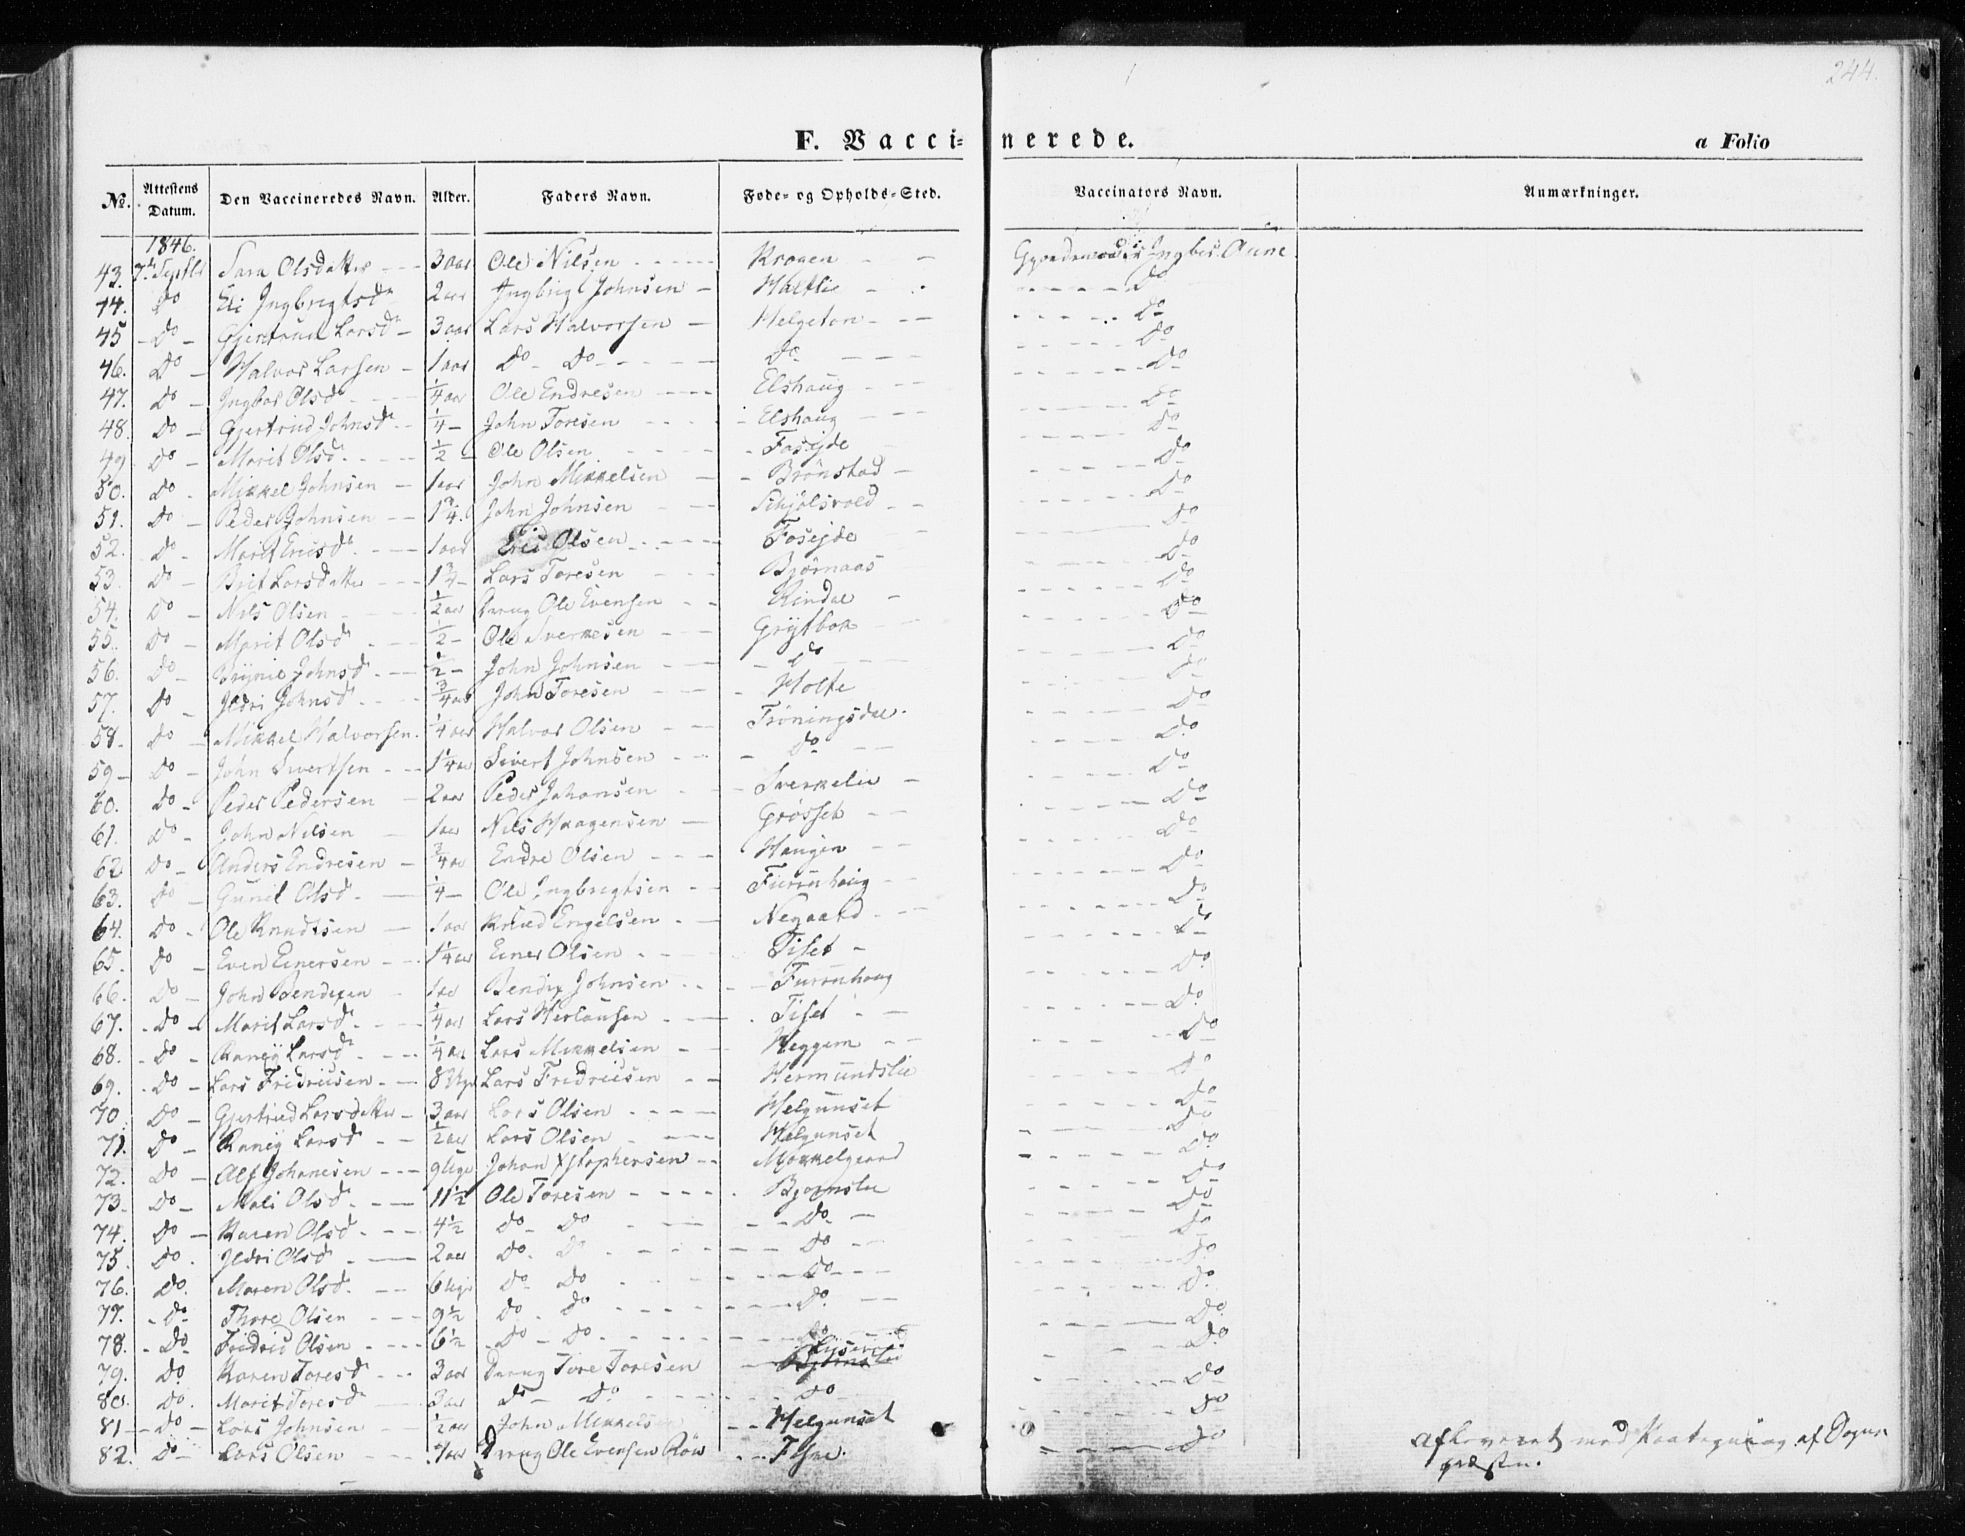 244.
F. Vaccinerede.
a Folio
No. Attestens Datum. Den Vaccineredes Navn. Alder. Faders Navn. Føde- og Opholds-Sted. Vaccinators Navn. Anmærkninger.
1846.
43. 7de Septbr Sara Olsdatter 3 aar Ole Nilsen Kroken Ingbr. Aune
44. Do Eli Ingbrigtsd 2 aar Ingbrigt Johnsen Do
45 Do Gjertrud Larsd 3 aar Lars Halvorsen Helgeton Do
46. Do Halvor Larsen 1 aar Do Do Do Do
47. Do Ingbor Olsd 1/4 aar Ole Endresen Elshaug Do
48. Do Gjertrud Johnsd 1/4 John Toresen Elshaug Do
49 Do Marit Olsd 1/2 Ole Olsen Fosejde Do
50. Do Mikkel Johnsen 1 aar John Mikkelsen Brönstad Do
51. Do Peder Johnsen 1 3/4 John Johnsen Schjölsvold Do
52. Do Marit Ericsd 1 aar Eric Olsen Fosejde Do
53. Do Brit Larsdatter 1 3/4 Lars Toresen Bjørnaas Do
54. Do Nils Olsen 1/2 aar Ole Evensen Rindal Do
55. Do Marit Olsd 1/2 Ole Sverkesen Grytbak Do
56. Do Johnsd 1/2 John Johnsen Do Do
57. Do Ildri Johnsd 3/4 aar John Toresen Holte Do
58. Do Mikkel Halvorsen 1/4 aar Halvor Olsen Tröningsdal Do
59 Do John Sivertsen 1 1/4 aar Sivert Johnsen Do Do
60. Do Peder Pedersen 2 aar Peder Johansen Sverkelie Do
61. Do John Nilsen 1 aar Nils Haagensen Grøsset Do
62 Do Anders Endresen 3/4 aar Endre Olsen Haugen Do
63. Do Gunil Olsd 1/4 Ole Ingbregtsen Furruhaug Do
64. Do Ole Knudtsen 1 aar Knud Engelsen Negaard Do
65. Do Even Einersen 1 1/4 aar Einer Olsen Tiset Do
66. Do John Bendixen 1 aar Bendix Johnsen Furruhaug Do
67. Do Marit Larsd 1/4 aar Lars Tiset Do
68. Do Raneÿ Larsd 1/4 aar Lars Mikkelsen Heggem Do
69. Do Lars Fridricsen 8 Uger Lars Fredricsen Hermundslie Do
70. Do Gjertrud Larsdatter 3 aar Lars Olsen Helgunset Do
71. Do Raneÿ Larsd 1/2 aar Lars Olsen Helgunset Do
72. Do Alf Johanesen 9 Uger Johan Xstophersen Mokkelgaard Do
73. Do Mali Olsd 11 1/2 Ole Toresen Bjørnslie Do
74. Do Karen Olsd 4 1/2 Do Do Do Do
75. Do Ildri Olsd 2 aar Do Do Do Do
76. Do Maren Olsd 6 Uger Do Do Do Do
77. Do Thore Olsen 9 1/2 Do Do Do Do
78. Do Fridric Olsen 6 1/2 Do Do Do Do
79. Do Karen Toresd 3 aar Tore Toresen Do
80. Do Marit Toresd 3 aar Do Do Do Do
81 Do Lars Johnsen 1/2 aar John Mikkelsen Helgunset Do
82. Do Lars Olsen Ole Evensen Do
Afleveret med Paategning af Sogne-
præsten.